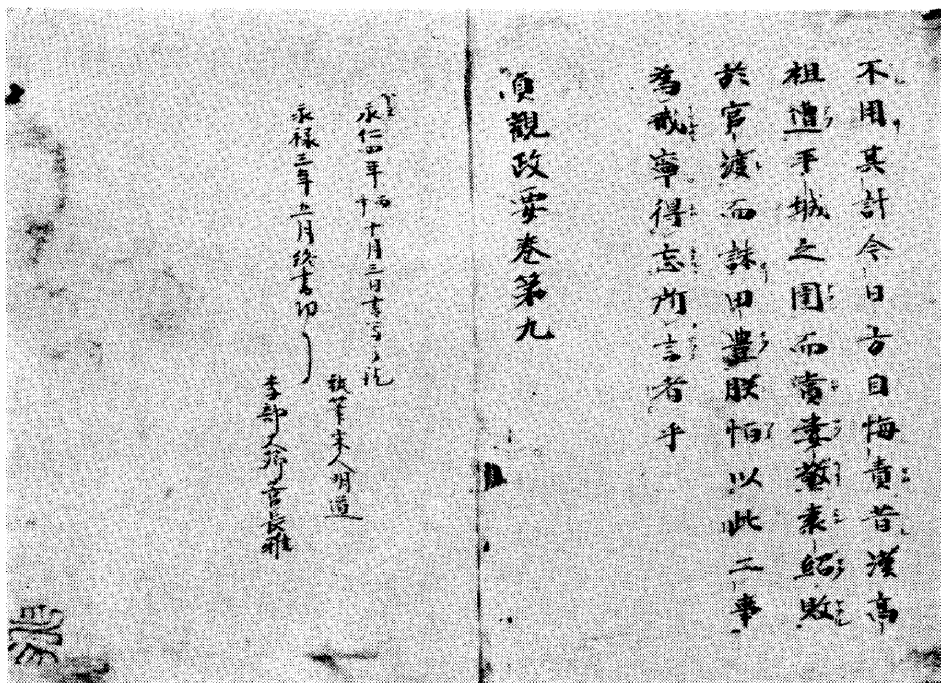 不用其計今日方自悔責昔漢高
祖遭平城之圍而賞婁敬袁紹敗
於官渡而誅田豊朕恒以此二事
為戒寧得忘所言者乎
貞觀政要卷第九
永仁四年丙申十月三日書写了
執筆宋人明道
永禄三年五月終書功了
李部大卿菅長雅